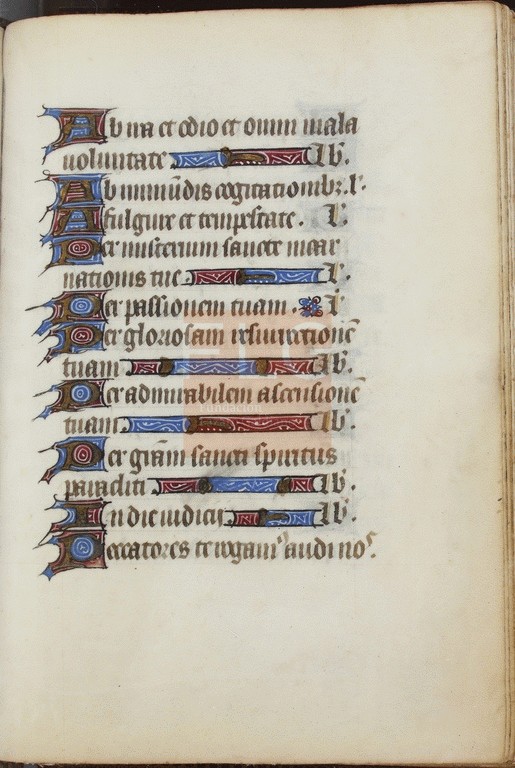 Ab ira et odio et omni mala
voluntate lb̃.
Ab inmũdis cogitationibꝫ. l̃.
A fulgure et tempestate. l̃.
Per misterium sancte incar
nationis tue. l̃.
Per passionem tuam. l̃
Per gloriosam resurrectionẽ
tuam lb̃.
Per admirabilem ascensionẽ
tuam. lb̃.
Per grãm sancti spiritus
paracliti lb̃.
In die iudicii. lb̃.
Peccatores te rogamꝰ audi nos.
Fundación